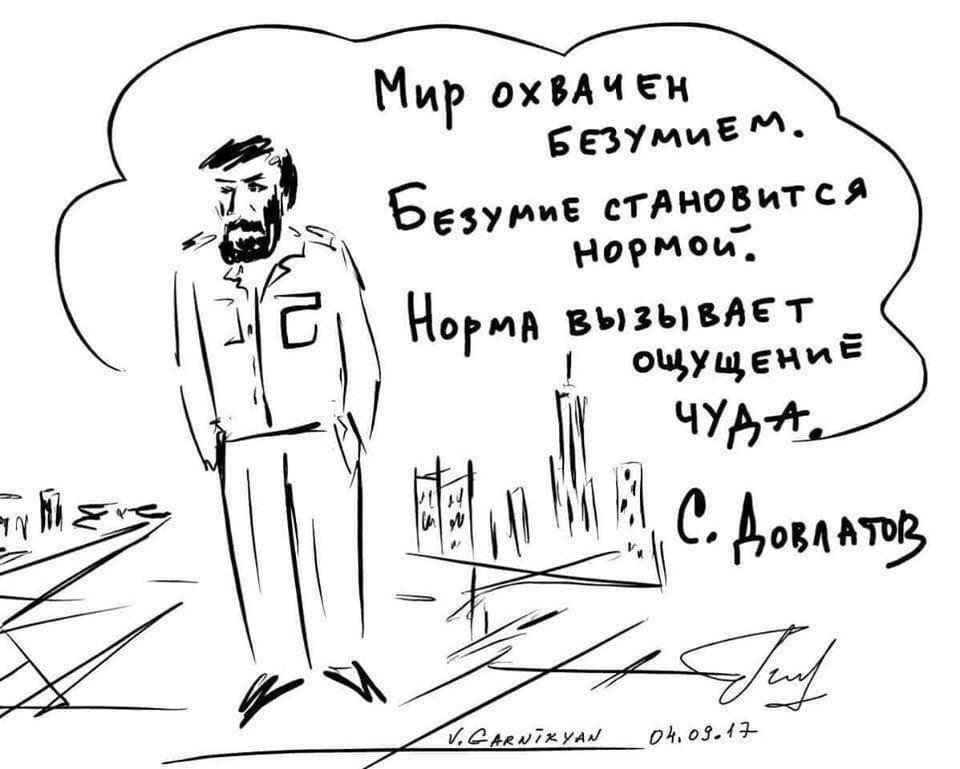 Мир охвачен
безумием.
Безумие становится
нормой.
Норма вызывает
ощущение
чуда.
С. Довлатов
V. GARNIKYAN 04.09.17